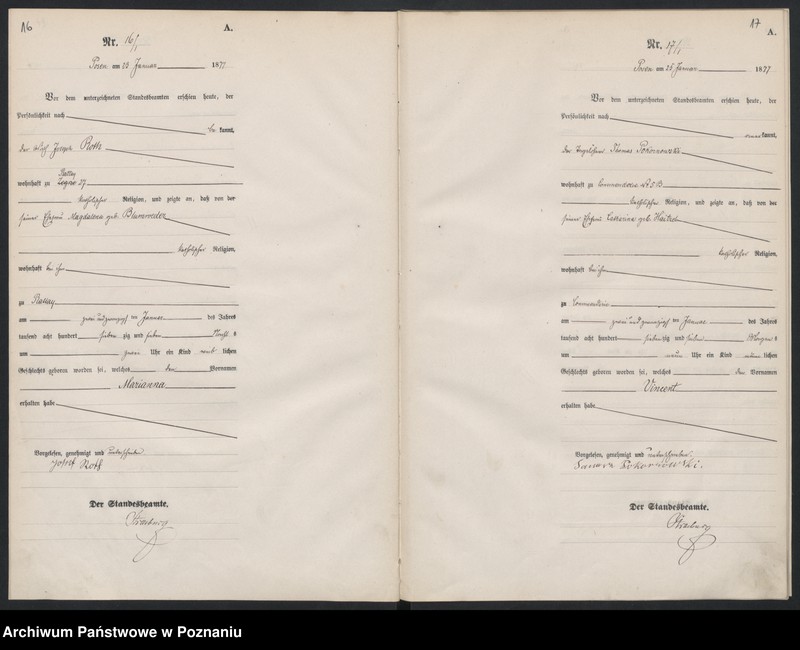 16
A.
Nr. 16/1
Posen am 23 Januar 1877
Vor dem unterzeichneten Standesbeamten erschien heute, der
Persönlichkeit nach
be kannt,
der Joseph Roth
Rattay
wohnhaft zu 37
katholischer Religion, und zeigte an, daß von der
seiner Ehefrau Magdalena geb.
katholischer Religion,
wohnhaft bei ihm
zu Rattay
am zwei und zwanzigsten Januar des Jahres
tausend acht hundert sieben zig und sieben
um zwei Uhr ein Kind weib lichen
Geschlechts geboren worden sei, welches den Vornamen
Marianna
erhalten habe
Vorgelesen, genehmigt und unterschrieben
Josef Roth
Der Standesbeamte.
17
A.
Nr. 17/1
Posen am 23 Januar 1877
Vor dem unterzeichneten Standesbeamten erschien heute, der
Persönlichkeit nach
kannt,
der Thomas
wohnhaft zu Commenderie
katholischer Religion, und zeigte an, daß von der
seiner Ehefrau geb.
katholischer Religion,
wohnhaft bei ihm
zu Commenderie
am zwei und zwanzigsten Januar des Jahres
tausend acht hundert sieben zig und sieben
um neun Uhr ein Kind lichen
Geschlechts geboren worden sei, welches den Vornamen
Vincent
erhalten habe
Vorgelesen, genehmigt und unterschrieben
Der Standesbeamte.
Archiwum Państwowe w Poznaniu